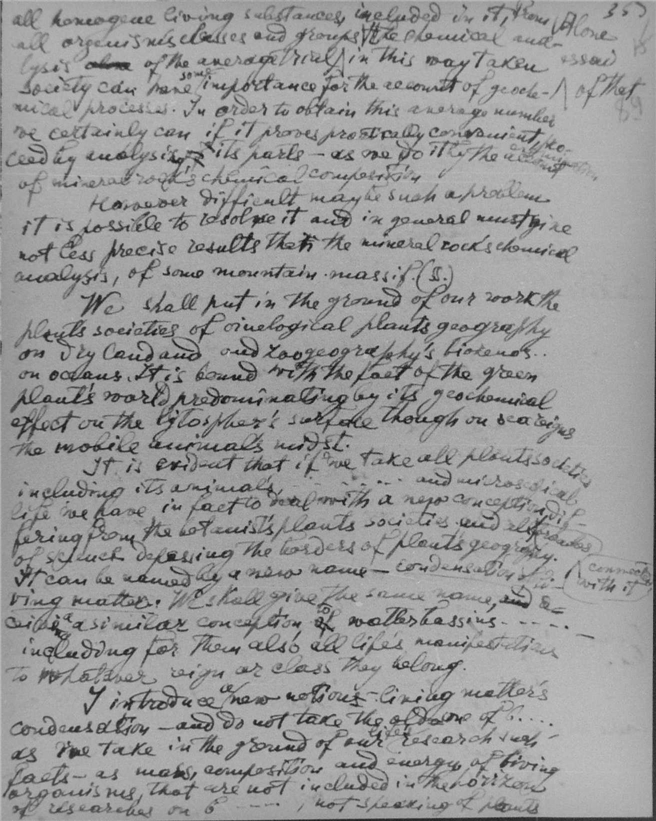 all homogene living substances, included in it, from 357
all organisms classes and groups the chemical ana- Alone
lysis of the average trial in this way taken
society can have some importance for the account of geoch- of that
mical processes. In order to obtain this average number 89
we certainly can if it proves practically convenient, pro-
ceed by analysis of its parts – as we do it by the account
of mineral rock's chemical composition
However difficult may be such a problem
it is possible to resolve it and in general must give
not less precise results than the mineral rock's chemical
analysis, of some mountain massif (s.)
We shall put in the ground of our work the
plants societies of plants geography
on dry land and and zoogeography's biocenos..
on oceans. It is bound with the fact of the green
plant's world predominating by its geochemical
effect on the litospher's surface though on sea reigns
the mobile animals midst.
It is evident that if we take all plants societies
including its animals, ........ and microscopical
life we have in fact to deal with a new conception dif-
fering from the botanist's plants societies and
of science depassing the borders of plants geography.
It can be named by a new name – condensation connected
ving matter. We shall give the same name, and with it
a similar conception of water bassins - - - - - -
including for them also all life's manifestations
to whatever reign or class they belong.
I introduce a new notions – living matter's
condensation – and do not take the old one of b....
as we take in the ground of our research such
facts – as mass, composition and energy of living
organisms, that are not included in the horizon
of researches on b ......, not speaking of plants